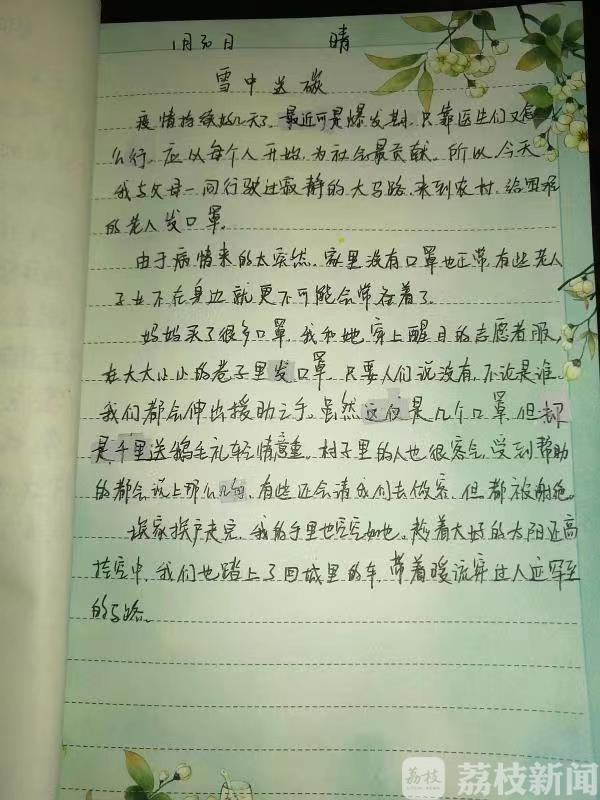 1月30日 晴
雪中送碳
疫情持续好几天了,最近可是爆发期,只靠医生们又怎
么行,应从每个人开始,为社会最贡献。所以,今天
我与父母一同行驶过寂静的大马路,来到农村,给困难
的老人发口罩。
由于病情来的太突然,家里没有口罩也正常,有些老人
子女不在身边就更不可能会常存着了。
妈妈买了很多口罩,我和她穿上醒目的志愿者服,
在大大小小的巷子里发口罩,只要人们说没有,不论是谁,
我们都会伸出援助之手。虽然这仅是几个口罩,但却
是千里送鹅毛礼轻情意重。村子里的人也很客气,受到帮助
的都会说上那么几句,有些还会请我们去做客,但都被谢绝。
挨家挨户走完,我的手里也空空如也。趁着大好的太阳还高
挂空中,我们也踏上了回城里的车,带着暖流穿过人迹罕至
的马路。
荔枝
荔枝新闻